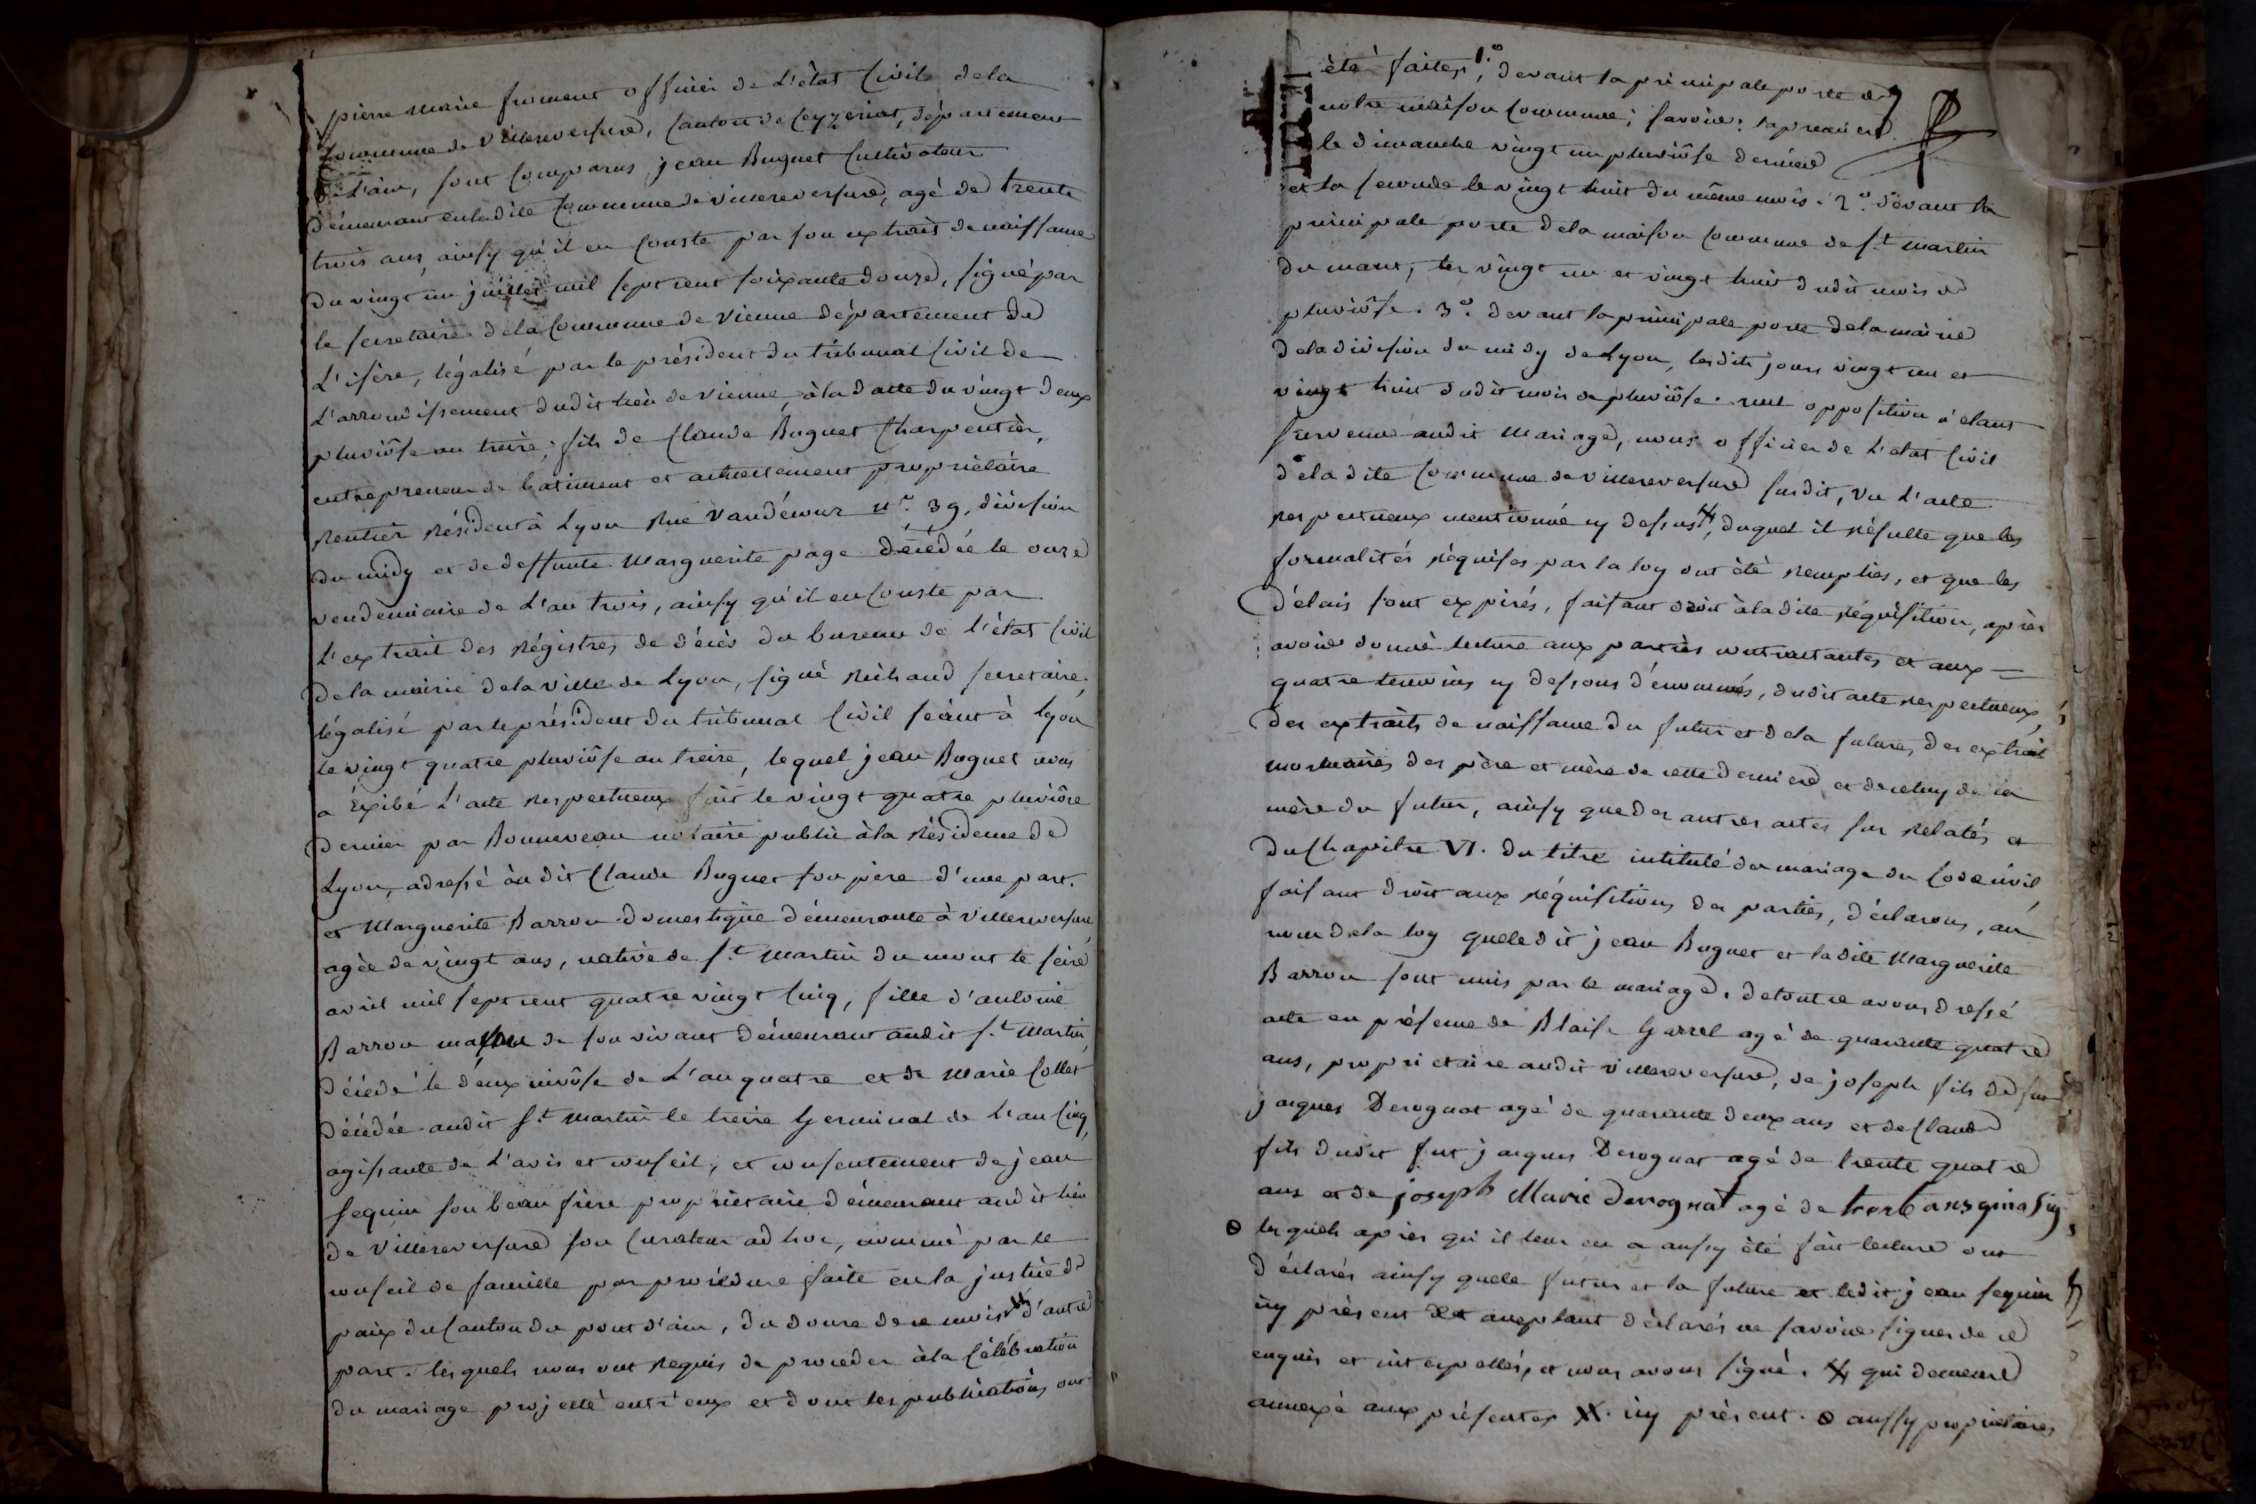 pierre marie froment officier de L'êtat Civil dela
Commune de villereversure, Canton de Ceyzeriat, département
de L'ain, sont Comparus jean Buguet Cultivateur
démeurant enladite Commune de villereversure, agé de trente
trois ans, ainsy qu'il en Conste par son extrait de naissance
du vingt un juillet mil sept cent soixante douze, signé par
le secretaire dela Commune de vienne département de
L'isére, légalisé par le président du tribunal Civil de
L'arrondissement dudit lieu de vienne, àla datte du vingt deux
pluviôse an treize; fils de Claude Buguet Charpentier,
entrepreneur de batiment et actuellement propriétaire
Rentier Résident à Lyon Rue vandémur n.o 39, division
du midy et de deffunte Marguerite page décédée le onze
vendèmiaire de L'an trois, ainsy qu'il en Conste par
L'extrait des Régistres de décès du bureau de l'état Civil
dela mairie dela ville de Lyon, signé Richaud secretaire,
légalisé par le président du tribunal Civil séant à Lyon
le vingt quatre pluviôse an treize, lequel jean Buguet nous
a Exibé L'acte Respectueux fait le vingt quatre pluviôse
dernier par Bonneveau notaire public àla Résidence de
Lyon, adressé àu dit Claude Buguet son père d'une part.
et Marguerite Barron domestique démeurante à villereversure
agée de vingt ans, native de s.t Martin du mont le seize
avril mil sept cent quatre vingt Cinq, fille d'antoine
Barron maçon de son vivant démeurant audit s.t Martin,
décédé le deux nivôse de L'an quatre et de Marie Collet
décédée audit s.t Martin le treize Germinal de L'an Cinq,
agissante de L'avis et conseil, et consentement de jean
sequin son beau frère propriétaire démeurant audit lieu
de villereversure son Curateur ad hoc, nommé par le
conseil de famille par procédure faite en la justice de
paix du Canton du pont d'ain, du douze de ce mois X d'autre
part. lesquels nous ont Requis de proceder àla Célébration
du mariage projetté entr'eux et dont les publications ont
été faites, 1.o devant la principale porte de
notre maison Commune; savoir: la premiere
le dimanche vingt un pluviôse dernier
et la seconde le vingt huit du même mois. 2.o devant la
principale porte dela maison Commune de s.t Martin
du mont, les vingt un et vingt huit dudit mois de
pluviôse. 3.o devant la principale porte dela mairie
dela division du midy de Lyon, lesdits jours vingt un et
vingt huit dudit mois de pluviôse. nul opposition n'étant
survenue audit Mariage, nous officier de L'etat Civil
dela dite Commune de villereversure susdit, vu L'acte
respectueux mentionné cy dessus X, duquel il Résulte que les
formalités Réquises par la loy ont été Remplies, et que les
délais sont expirés, faisant droit àladite Réquisition, aprés
avoir donné lecture aux parties contractantes et aux =
quatre temoins cy dessous dénommés, dudit acte respectueux,
des extraits de naissance du futur et dela future, des extrait
mortuaires des père et mère de cette derniere et de celuy de la
mère du futur, ainsy que des autres actes sus Relatés et
du Chapitre VI. du titre intitulé du mariage du Code civil,
faisant droit aux Réquisitions des parties, déclarons, au
nom dela loy que le dit jean Buguet et ladite Marguerite
Barron sont unis par le mariage. de tout ce avons dressé
acte en présence de Blaise Garrel agé de quarante quatre
ans, proprietaire audit villereversure, de joseph fils de feu
jacques Derognat agé de quarante deux ans et de Claude
fils dudit feut jacques Derognat agé de trente quatre
ans et de joseph Marie derognat agé de trente ans
⊖ lesquels après qu'il leur en a aussy été fait lecture ont
déclarés ainsy que le futur et la future et ledit jean sequin
icy présent et acceptant déclarés ne savoir signer de ce
enquis et interpellés, et nous avons signé. X qui demeure
annexé aux présentes X. icy présent. ⊖ aussy proprietaires